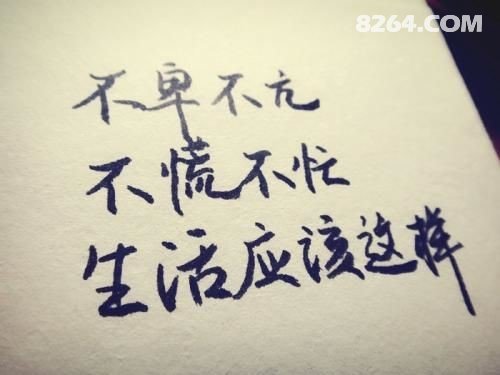 8264.COM
不卑不亢
不慌不忙
生活应该这样